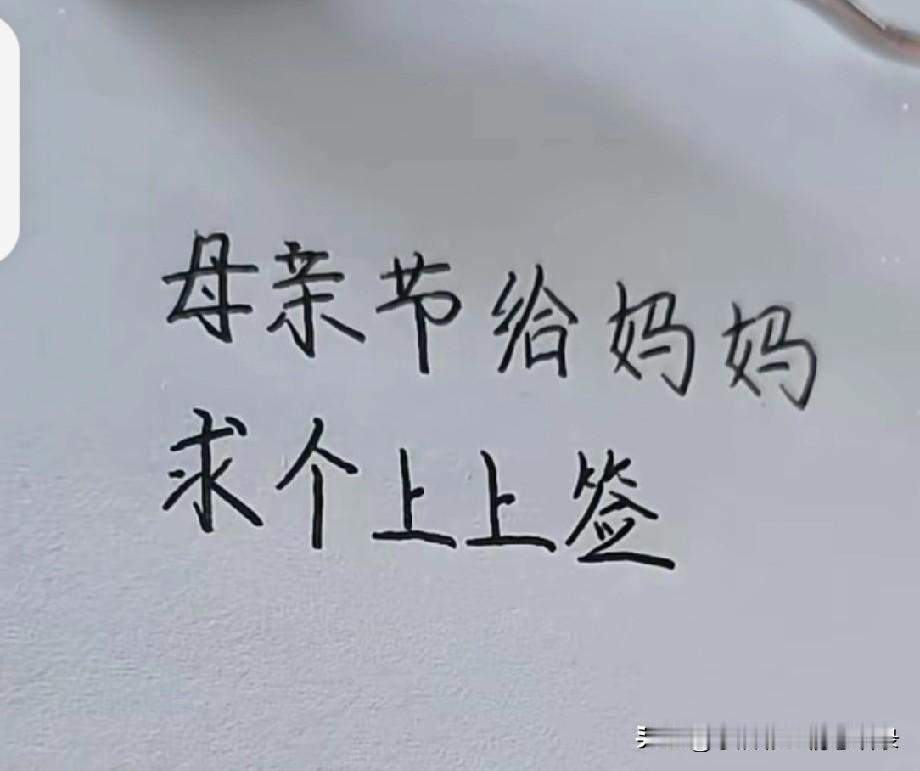 母亲节给妈妈
求个上上签